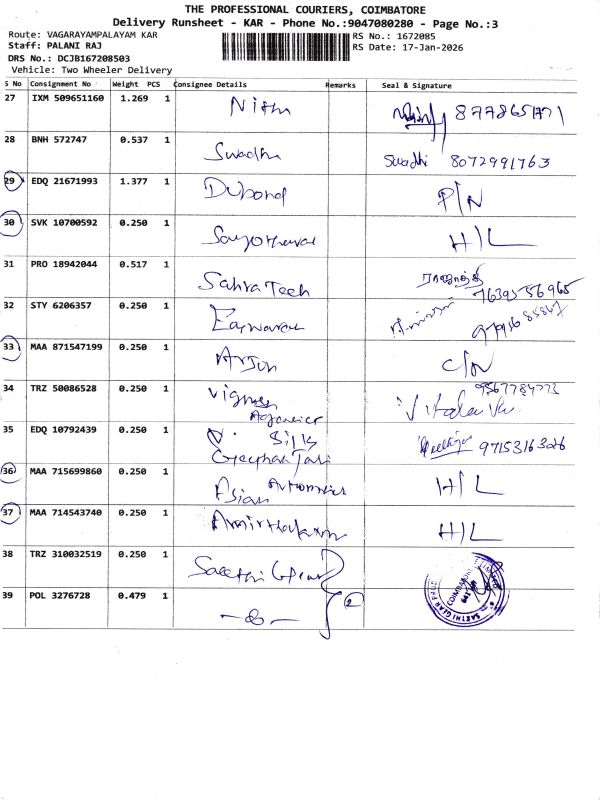 THE PROFESSIONAL COURIERS, COIMBATORE
Delivery Runsheet - KAR - Phone No.:9047080280 - Page No.:3
Route: VAGARAYAMPALAYAM KAR
RS No.: 1672085
Staff: PALANI RAJ
RS Date: 17-Jan-2026
DRS No.: DCJB167208503
Vehicle: Two Wheeler Delivery
S No Consignment No Weight PCS Consignee Details Remarks Seal & Signature
27 IXM 509651160 1.269 1 Nithn
28 BNH 572747 0.537 1 Swadhi Swadhi 8072991763
29 EDQ 21671993 1.377 1 Dubond P/N
30 SVK 10700592 0.250 1 H/L
31 PRO 18942044 0.517 1 Sahra Tech 7639556965
32 STY 6206357 0.250 1
33 MAA 871547199 0.250 1 Arjun C/N
34 TRZ 50086528 0.250 1 Vignesh Agencies
35 EDQ 10792439 0.250 1 Silks 9715316326
36 MAA 715699860 0.250 1 Asian Automotives H/L
37 MAA 714543740 0.250 1 H/L
38 TRZ 310032519 0.250 1 Saethi Gear
39 POL 3276728 0.479 1 2